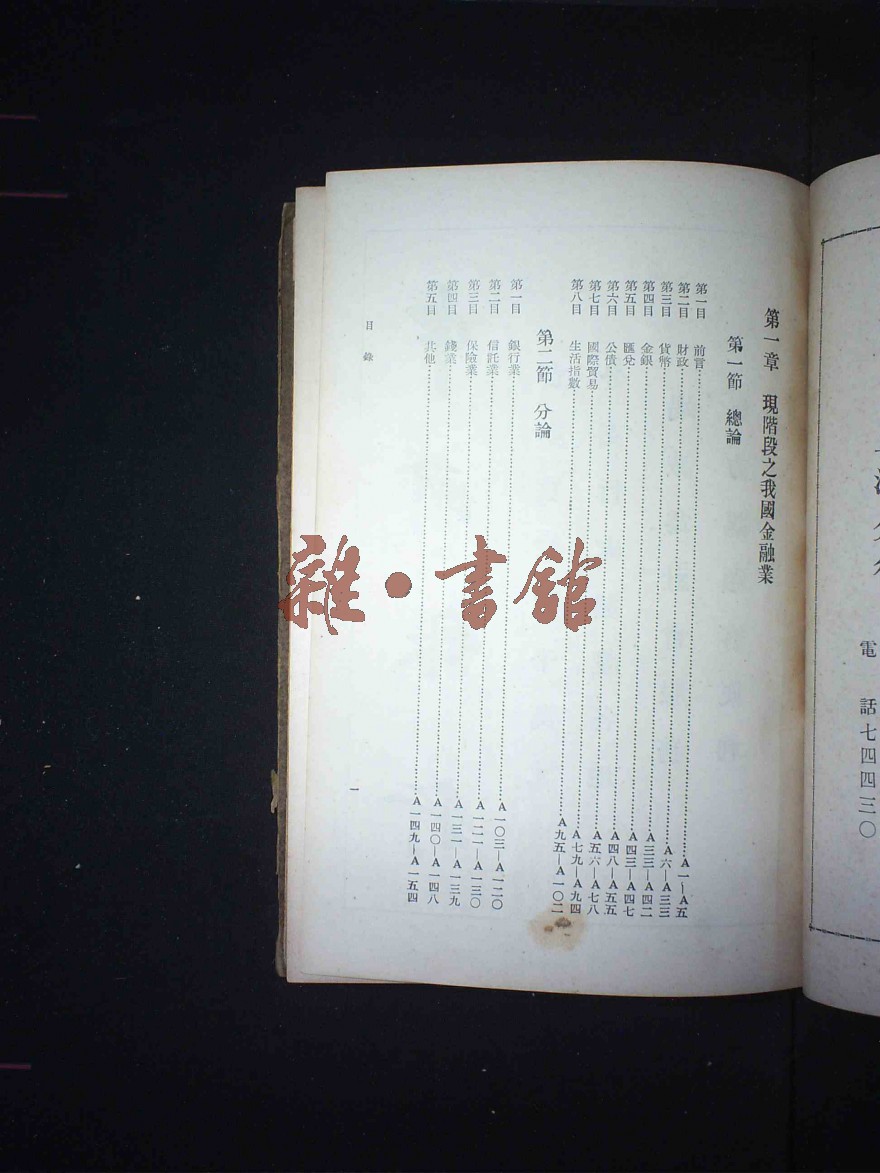 電　話七四四三〇
第一章　現階段之我國金融業
第一節　總論
第一目　前言……A一—A五
第二目　財政……A六—A三三
第三目　貨幣……A三三—A四二
第四目　金銀……A四三—A四七
第五目　匯兌……A四八—A五五
第六目　公債……A五六—A七八
第七目　國際貿易……A七九—A九四
第八目　生活指數……A九五—A一〇二
第二節　分論
第一目　銀行業……A一〇三—A一二〇
第二目　信託業……A一二一—A一三〇
第三目　保險業……A一三一—A一三九
第四目　錢業……A一四〇—A一四八
第五目　其他……A一四九—A一五四
目　錄
一
雜·書館